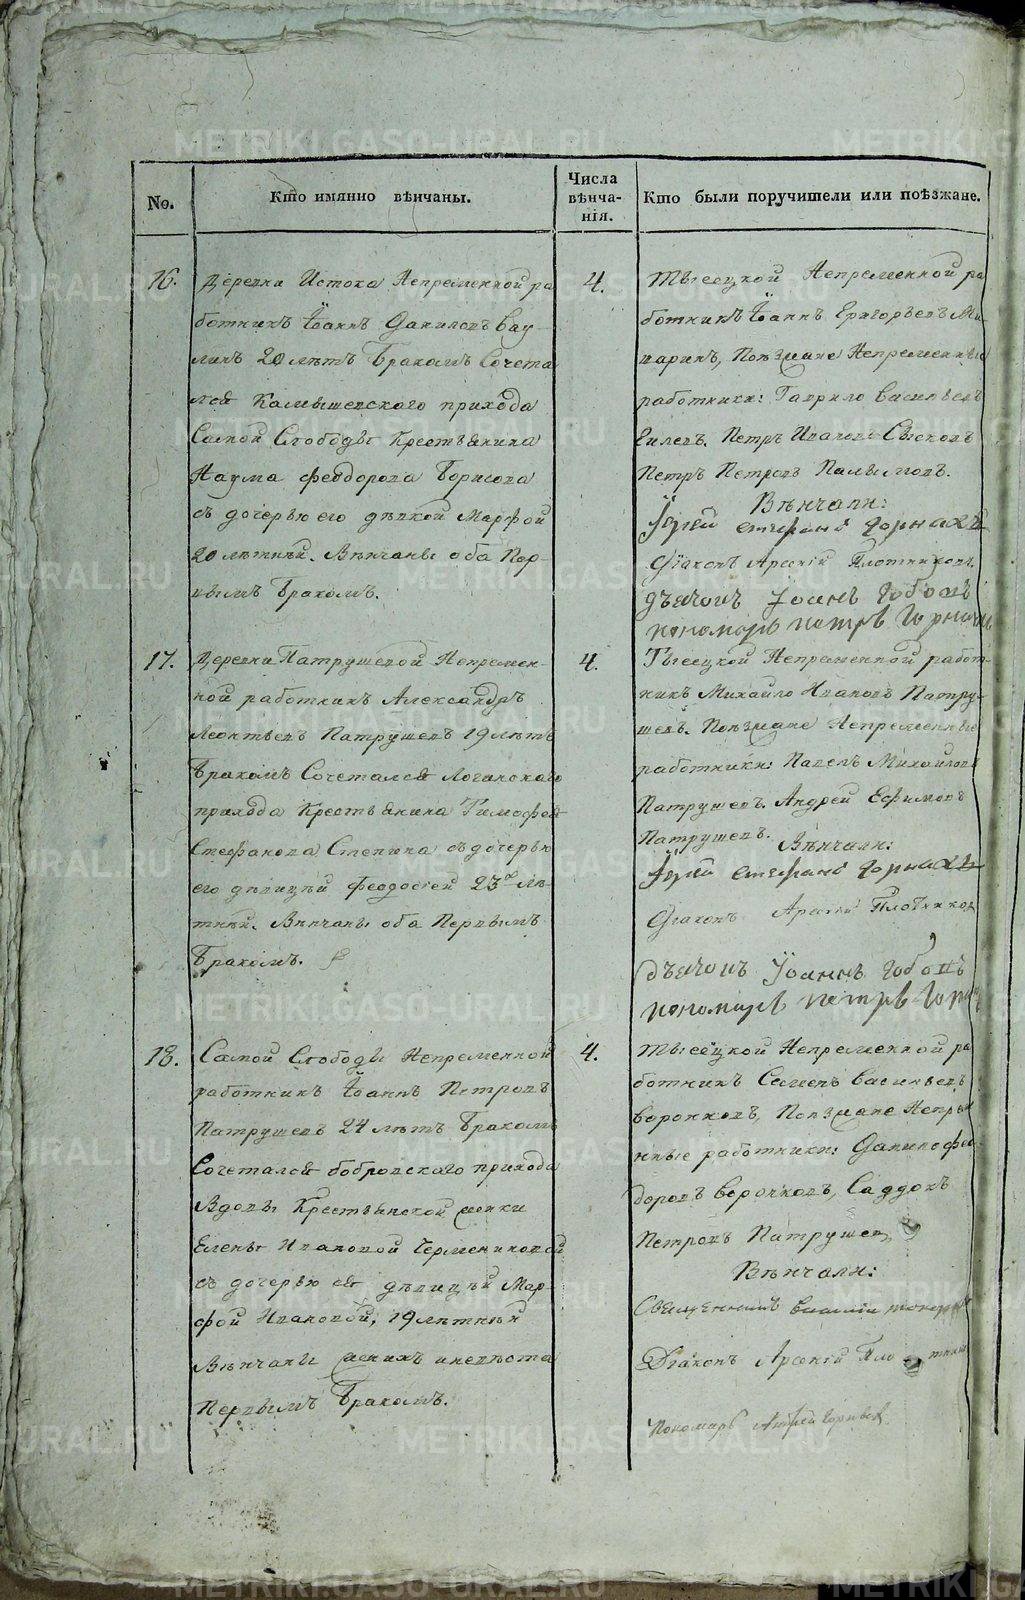 No.
Кто имянно вѣнчаны.
Числа
вѣнча-
нія.
Кто были поручители или поѣзжане.
16.
Деревни Истока Непременной ра
ботникъ Іоаннъ Даниловъ Вау
линъ 20 лѣтъ Бракомъ Сочета
лся Камышевскаго прихода
Самой Слободы Крестьянина
Наума Феодорова Борисова
съ дочерью его дѣвкой Марфой
20 лѣтнѣй. Вѣнчаны оба Пер-
вымъ Бракомъ.
4.
Тысецкой Непременной ра
ботникъ Іоаннъ Григорьевъ
Поѣзжане Непременные
работники: Гаврило Васильевъ
Гилевъ. Петръ Ивановъ
Петръ Петровъ
Вѣнчали:
Іерей Стефанъ
Діаконъ Арсеній Плотниковъ
дьячокъ Іоаннъ
пономарь Петръ
17.
Деревни Патрушевой Непремен-
ной работникъ Александръ
Леонтьевъ Патрушевъ 19 лѣтъ
Бракомъ Сочетался Логиновскаго
прихода Крестьянина Тимофея
Стефанова Степина съ дочерью
его дѣвицѣй Феодосіей 23 лѣ-
тнѣй. Вѣнчаны оба Первымъ
Бракомъ.
4.
Тысецкой Непременной работ-
никъ Михайло Ивановъ Патру-
шевъ. Поѣзжане Непременные
работники: Павелъ Михайловъ
Патрушевъ. Андрей Ефимовъ
Патрушевъ.
Вѣнчали:
Іерей Стефанъ
Діаконъ Арсеній Плотников
дьячокъ Іоаннъ
пономарь Петръ
18.
Самой Слободы Непременной
работникъ Іоаннъ Петровъ
Патрушевъ 24 лѣтъ Бракомъ
Сочетался бобровскаго прихода
Вдовы Крестьянской жонки
Елены Ивановой Чермениновой
съ дочерью ея дѣвицѣй Мар-
фой Ивановой, 19 лѣтнѣй
Вѣнчаны женихъ и невѣста
Первымъ Бракомъ.
4.
Тысецкой Непременной ра
ботникъ Семенъ Васильевъ
Воронковъ, Поѣзжане Непрем
нные работники: Данило Фео
доровъ Воронковъ, Саддокъ
Петровъ Патрушев
Вѣнчали:
Священникъ Василій
Діаконъ Арсеній Плотник
Пономарь
METRIKI.GASO-URAL.RU